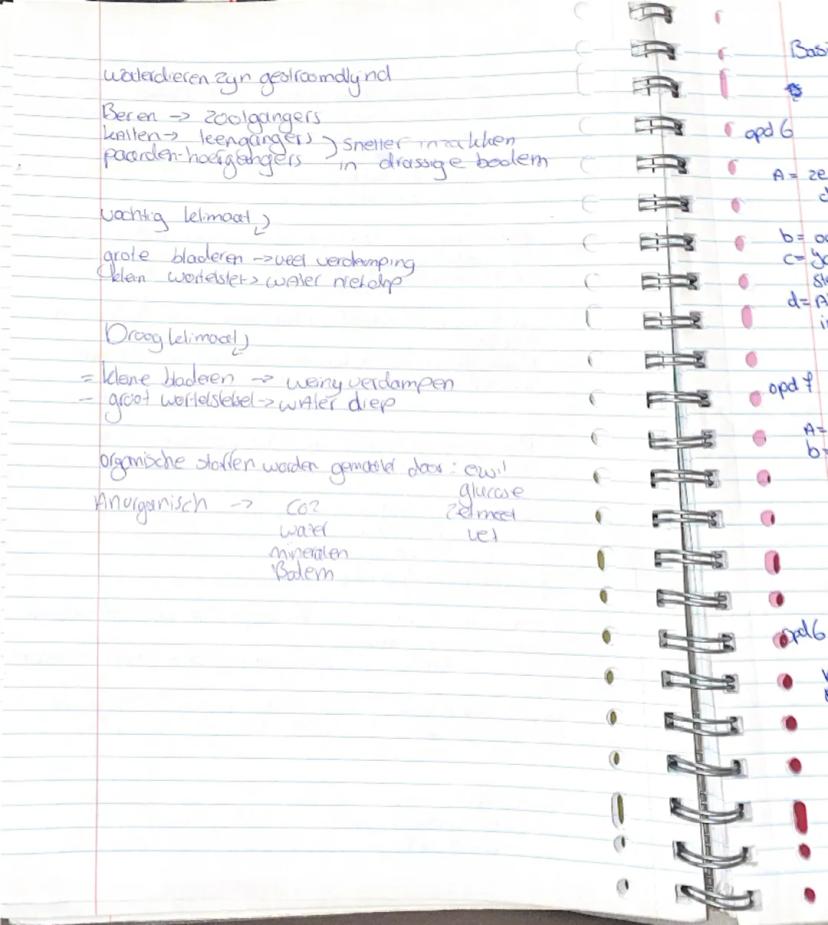 waterdieren zyn gestroomdlynd
Beren -> zoolgangers
katten -> teengangers ) sneller inzakken
paarden - hoefgangers in drassige bodem
vochtig klimaat
grote bladeren -> veel verdamping
klein wortelstel > water niet diep
Droog klimaat
= kleine bladeren -> weinig verdampen
- groot wortelstelsel -> water diep
organische stoffen worden gemaakt door : eiwit
glucose
Anorganisch -> CO2 zetmeel
water vet
mineralen
Bodem
Basi
opd 6
A = ze
b =
c =
d = A
opd 7
A =
b =
opd 6